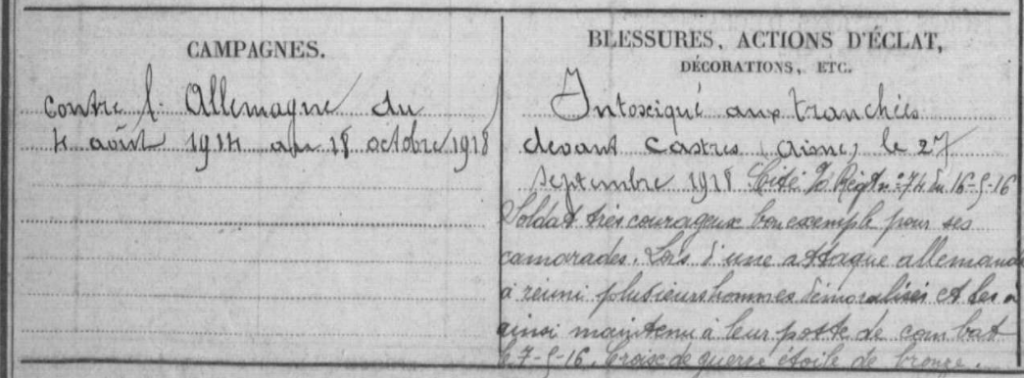 CAMPAGNES.
contre l'Allemagne du
4 août 1914 au 18 octobre 1918
BLESSURES, ACTIONS D'ÉCLAT,
DÉCORATIONS, ETC.
Intoxiqué aux tranchées
devant Castres (Aisne) le 27
septembre 1918. Cité Regt n° 74 du 16-5-16
Soldat très courageux bon exemple pour ses
camarades. Lors d'une attaque allemande
a réuni plusieurs hommes démoralisés et les a
ainsi maintenu à leur poste de combat
le 7-5-16. Croix de guerre étoile de bronze.